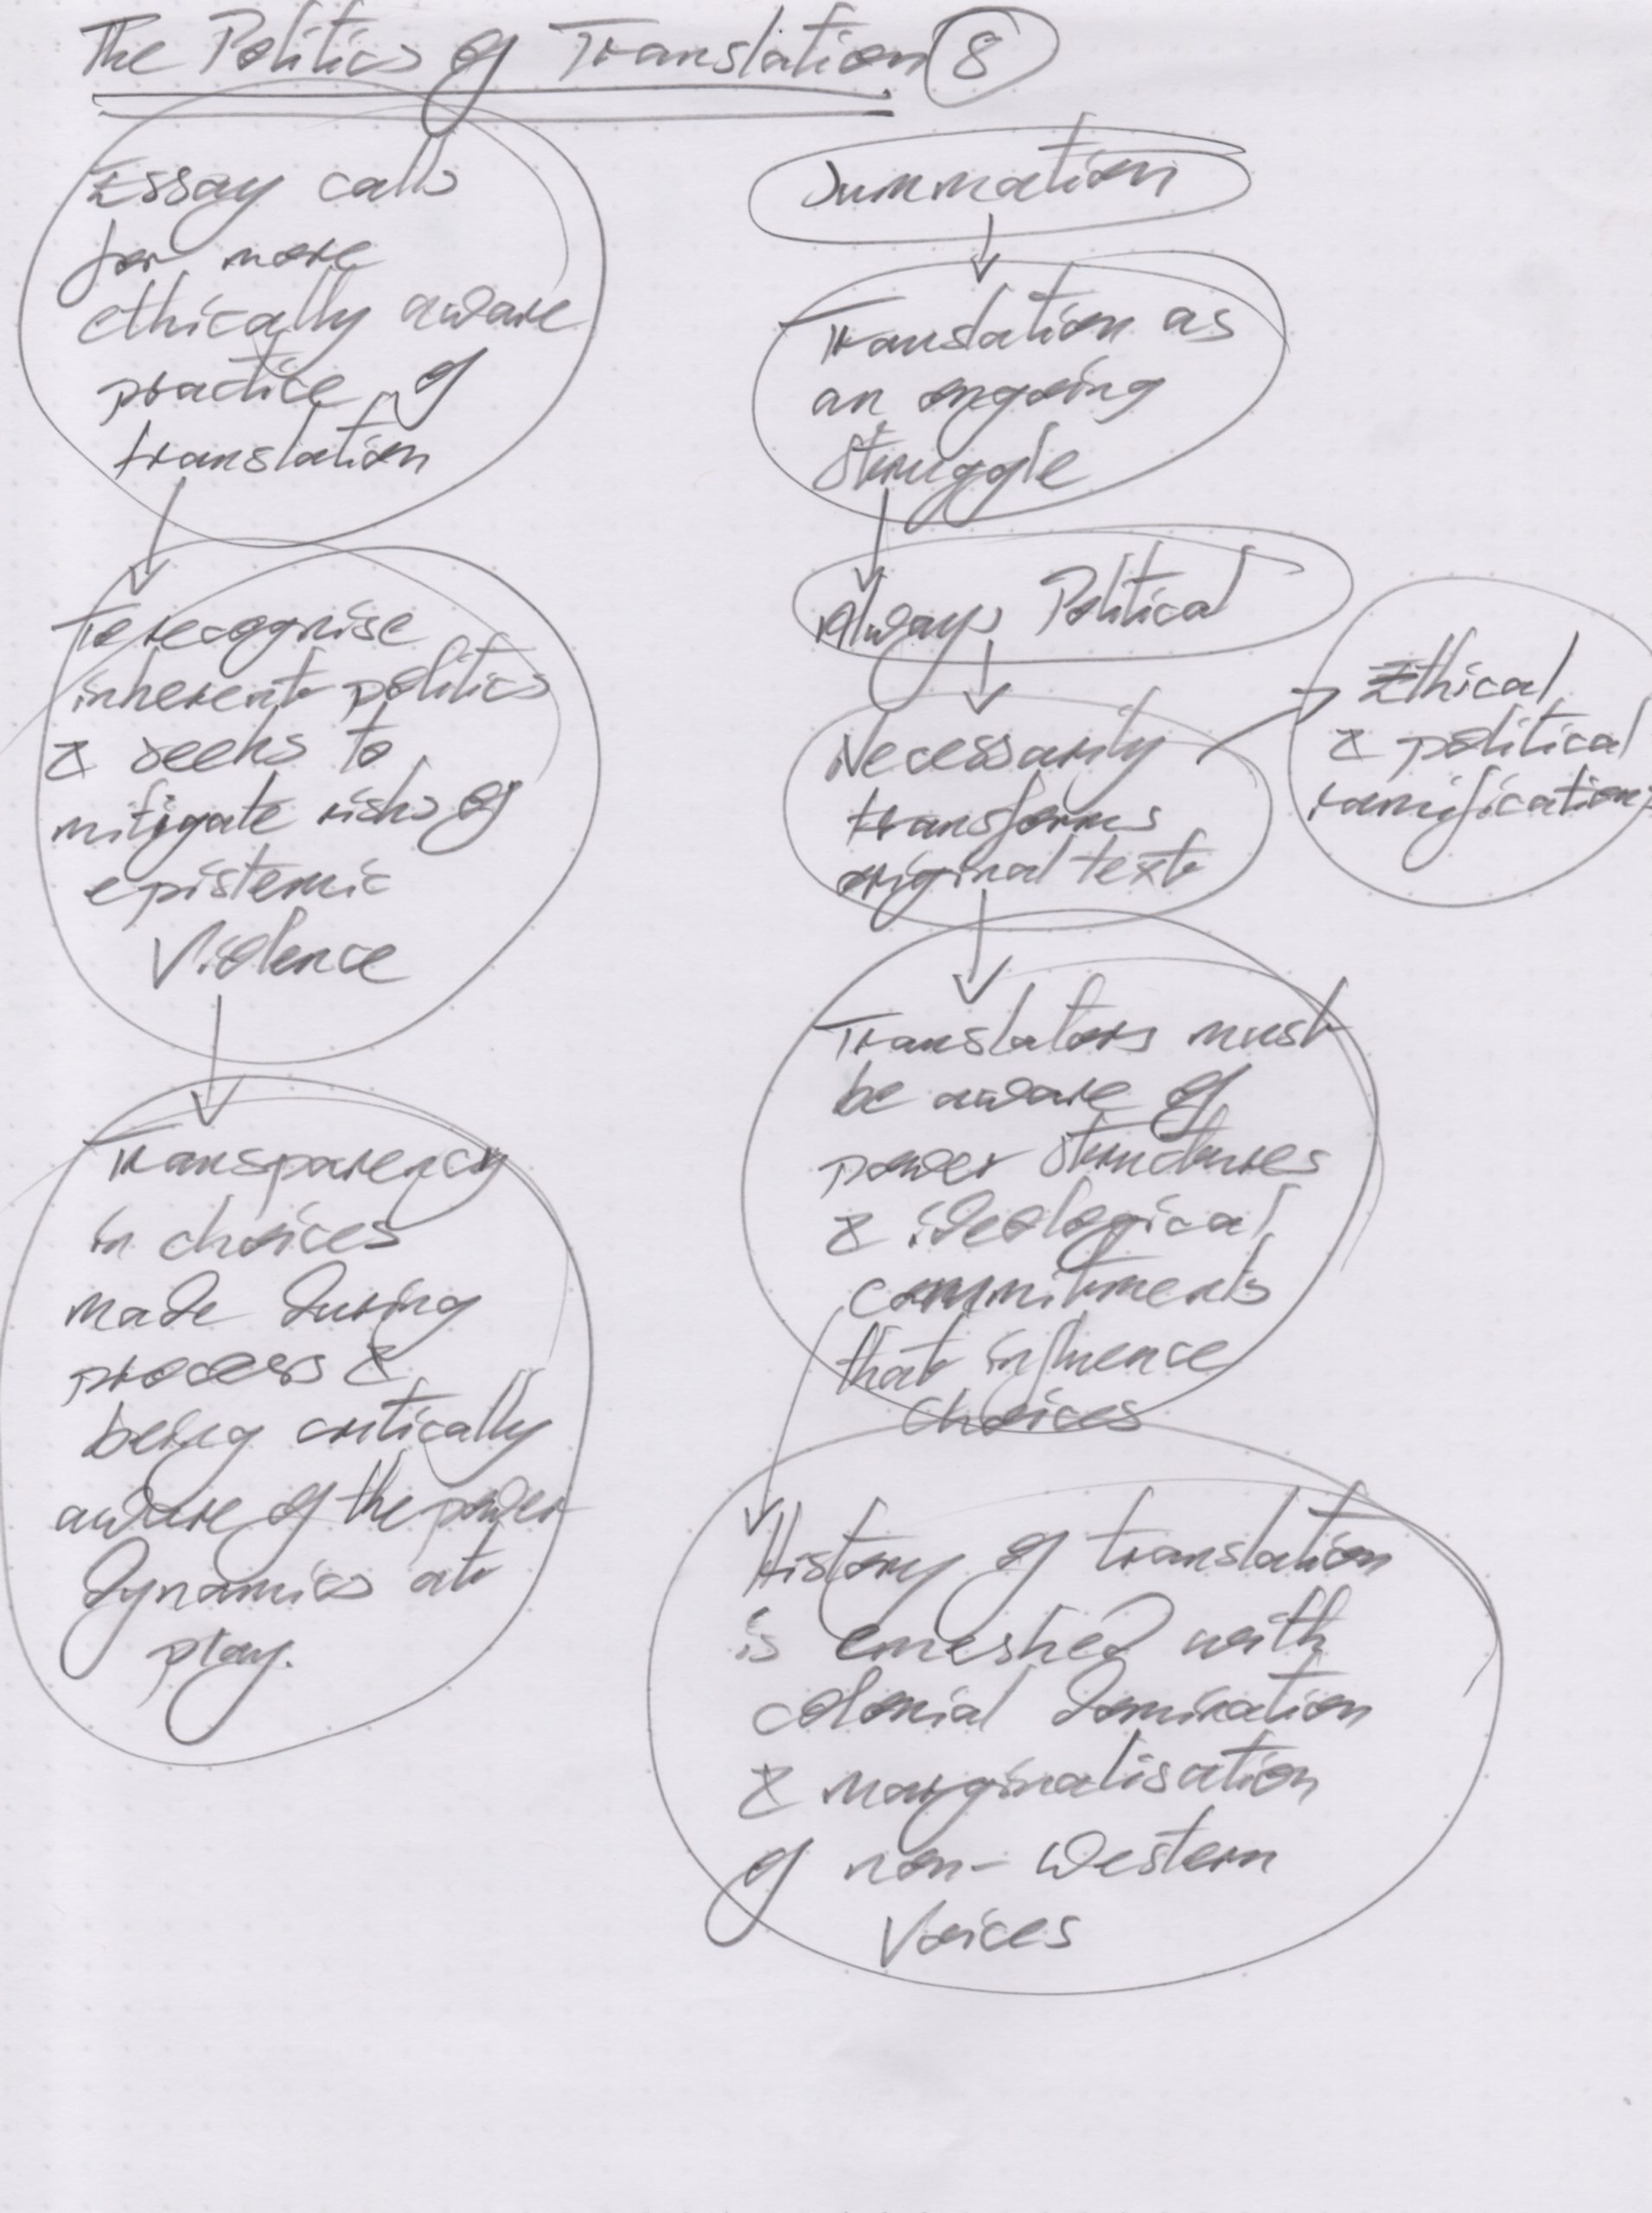 The Politics of Translation 8
Essay calls
for more
ethically aware
practice of
translation
To recognise
inherent politics
& seeks to
mitigate risks of
epistemic
Violence
Transparency
in choices
made during
process &
being critically
aware of the power
dynamics at
play.
Summation
Translation as
an ongoing
struggle
Always Political
Necessarily
transforms
original text
Ethical
& political
ramifications
Translators must
be aware of
power structures
& ideological
commitments
that influence
choices
History of translation
is emeshed with
colonial domination
& marginalisation
of non-Western
Voices